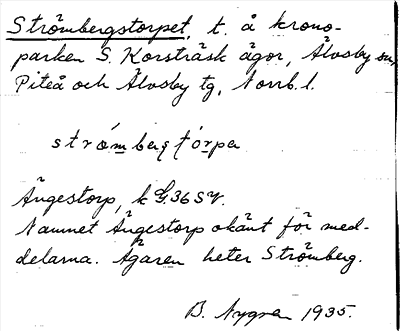 Strömbergstorpet, t. å krono-
parken S. Korsträsk ägor, Älvsby sn,
Piteå och Älvsby tg, Norrb. l.
strömbergstórpa
Ängestorp, k G.36 SV.
Namnet Ängestorp okänt för med-
delarna. Ägaren heter Strömberg.
B. Nygren 1935.